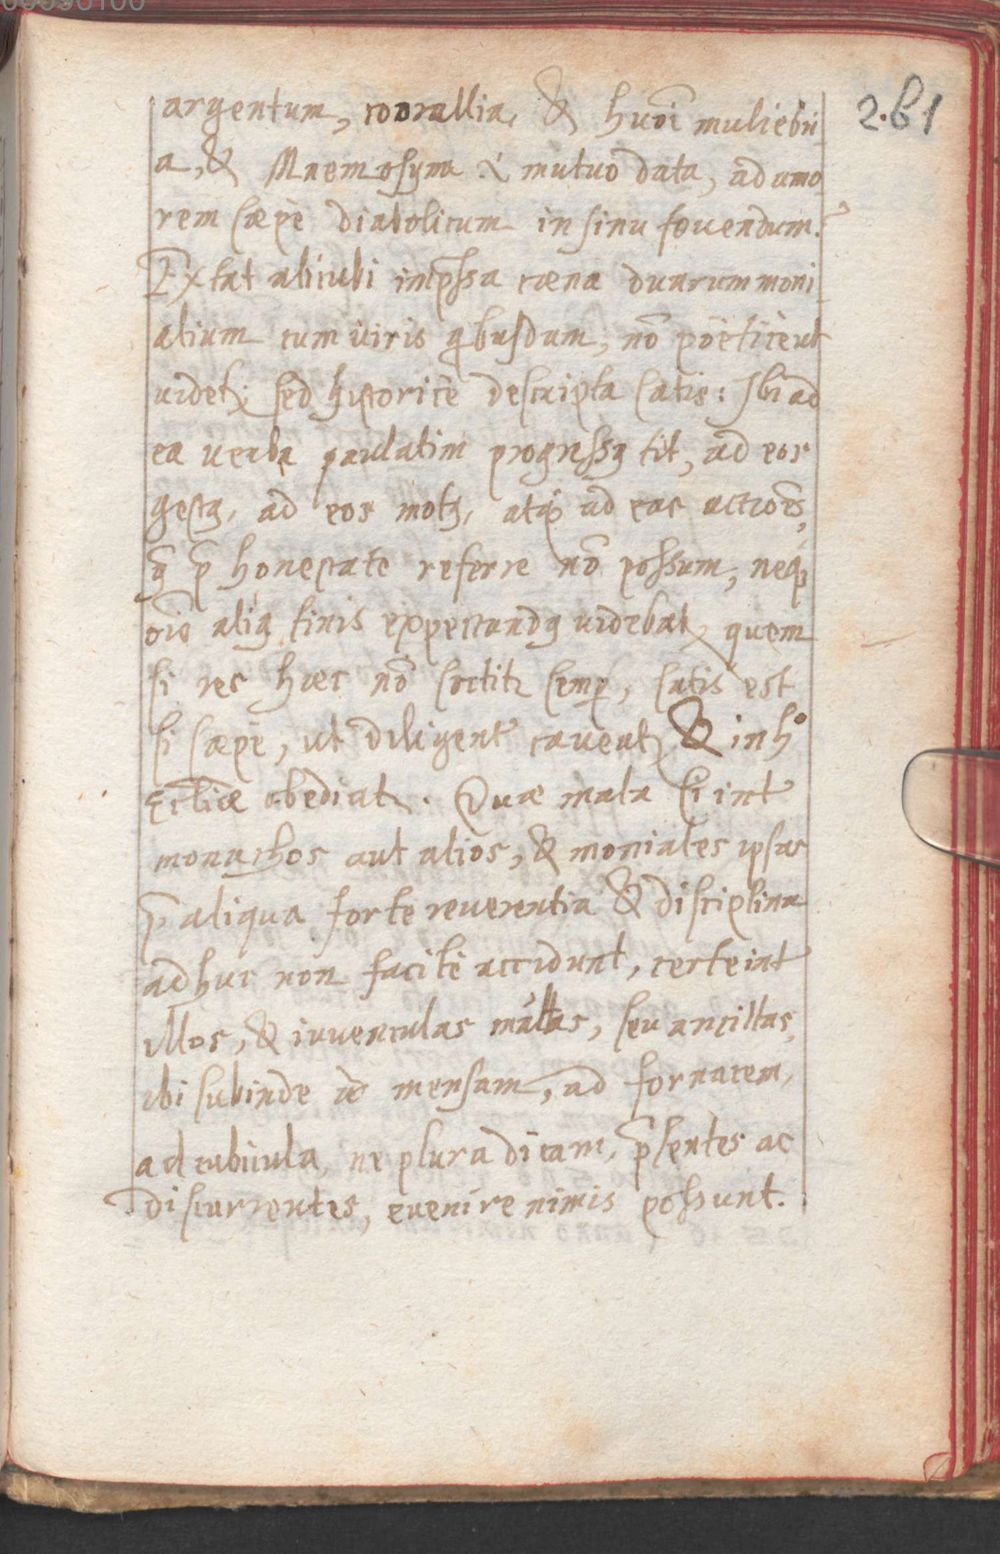 00096100
2.61
argentum, coorallia, & huōi muliebri
a, & Mnemosyna & mutuo data, ad amo
rem sæpè diabolicum in sinu fouendum?
Extat alicubi imp̄ssa cæna duarum moni
alium cum uiris qbusdam, nō pöeticè ut
uidet, sed historicè descripta satis: Ibi ad
ea uerba paulatim progressq fit, ad eos
gestq, ad eos motq, atq ad eas actiōes,
q p̄ honestate referre nō possum, neq
aliq finis expectandq uidebat, quem
si res hæc nō sortit semp, satis est
si sæpè, ut diligent caueat, & in h°
Eccliæ obediat. Quæ mala si int
monachos aut alios, & moniales ipsas
p̄ aliqua forte reuerentia & disciplina
adhuc non facilè accidunt, certe int
illos, & iuuenculas multas, seu ancillas,
ibi subinde ad mensam, ad fornacem,
ad cubicula, ne plura dicam, p̄sentes ac
discurrentes, euenire nimis possunt.